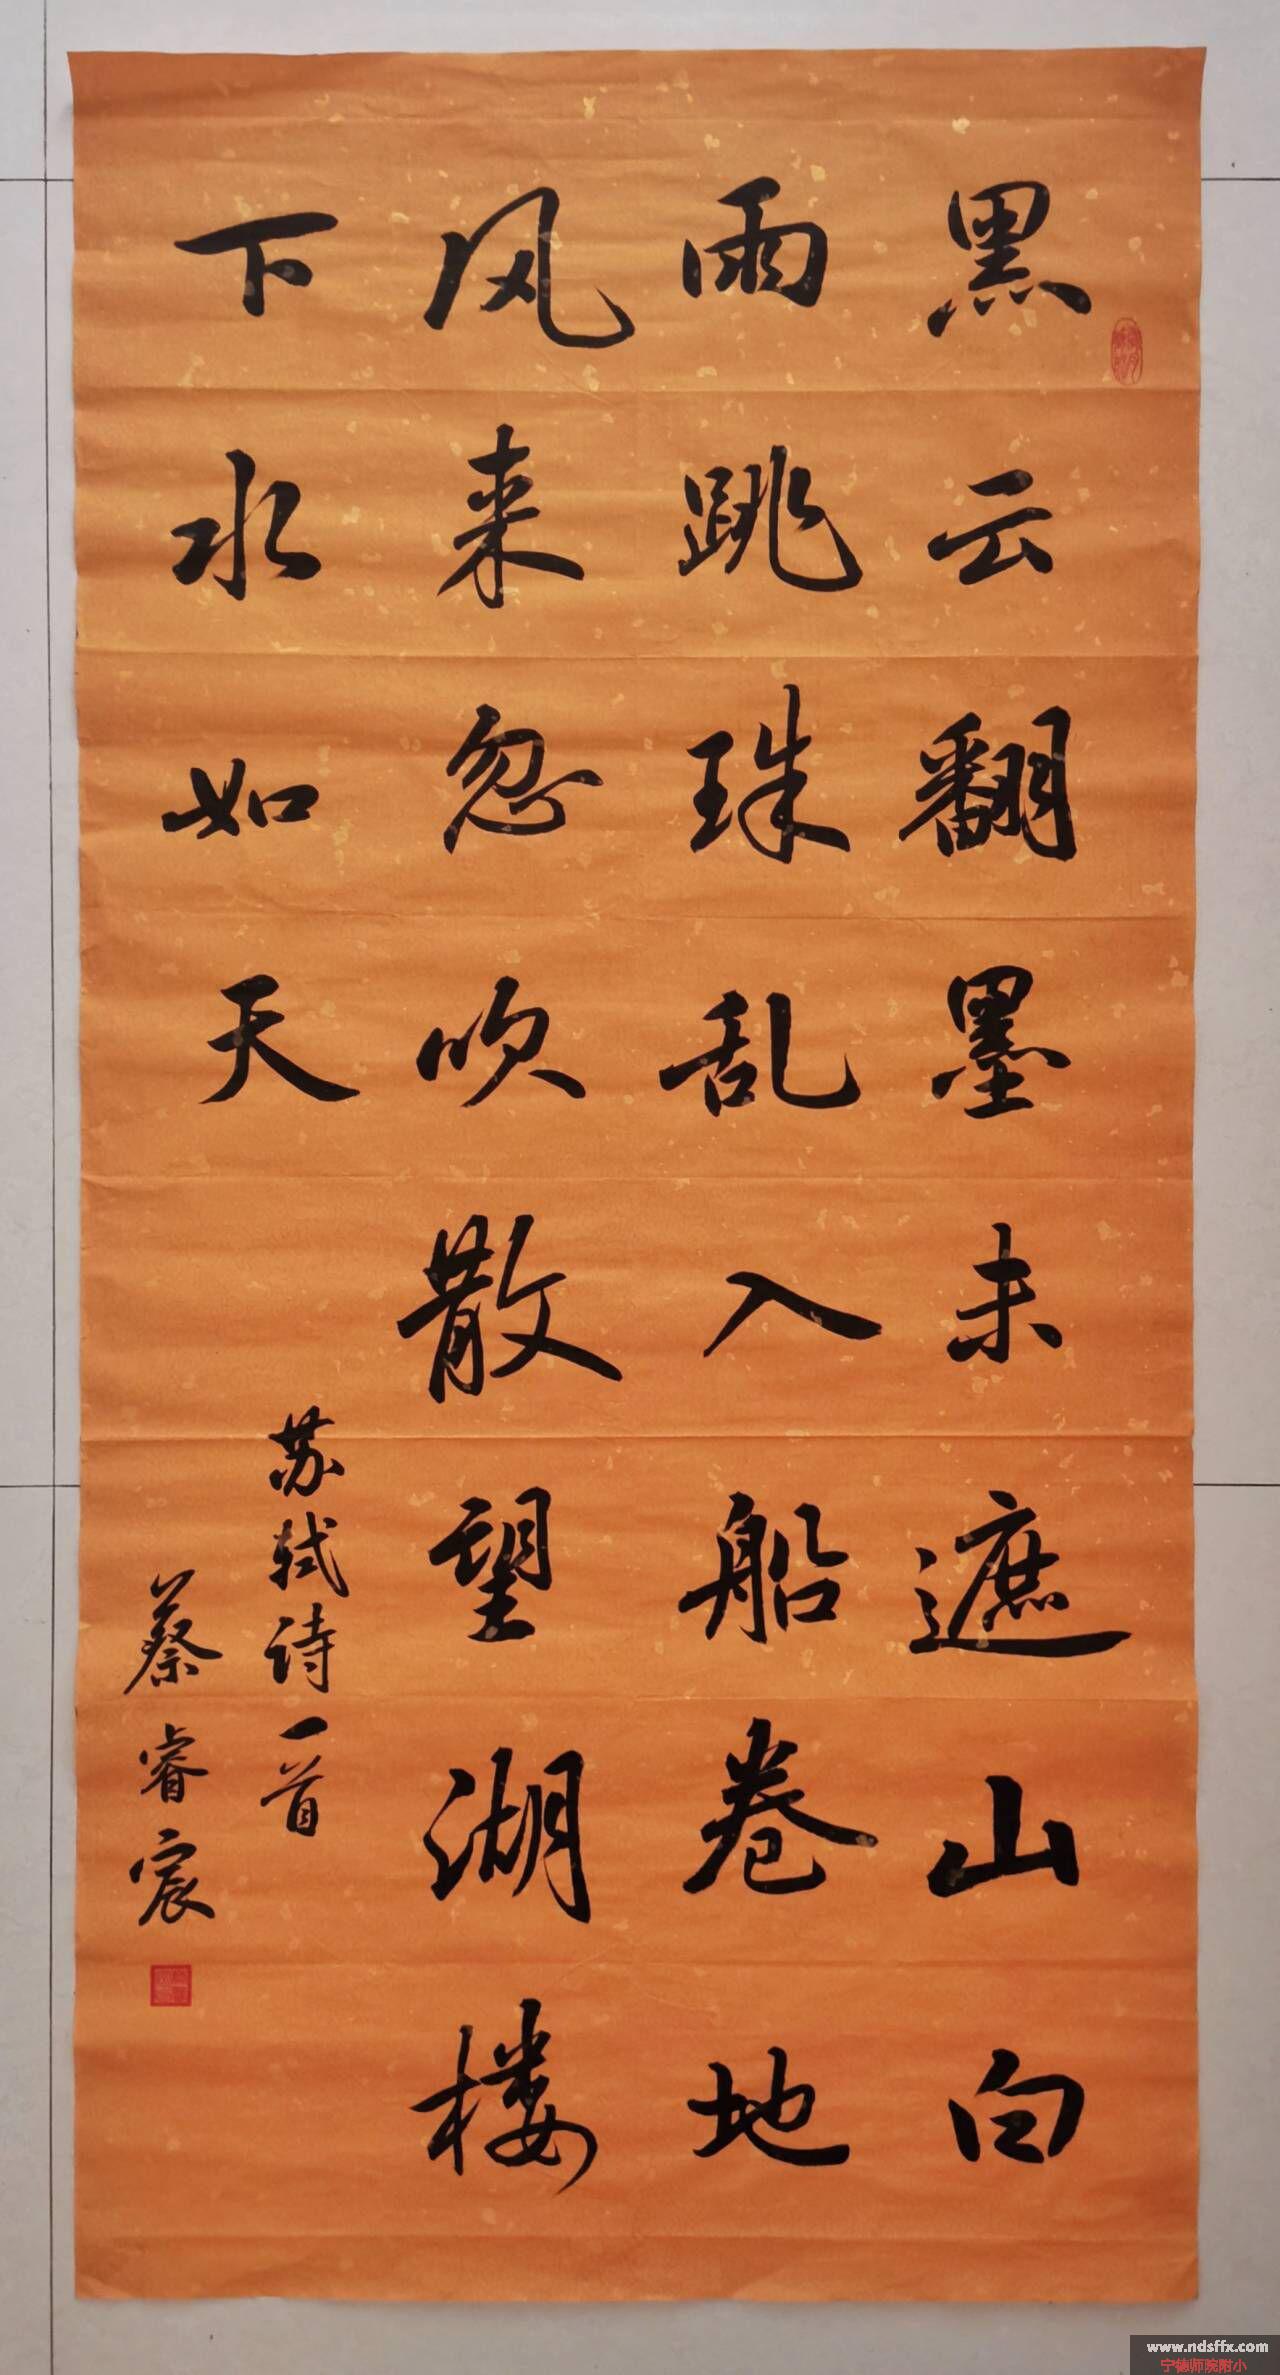 黑云翻墨未遮山白
雨跳珠乱入船卷地
风来忽吹散望湖楼
下水如天
苏轼诗一首
蔡睿宸
www.ndsffx.com
宁德师院附小